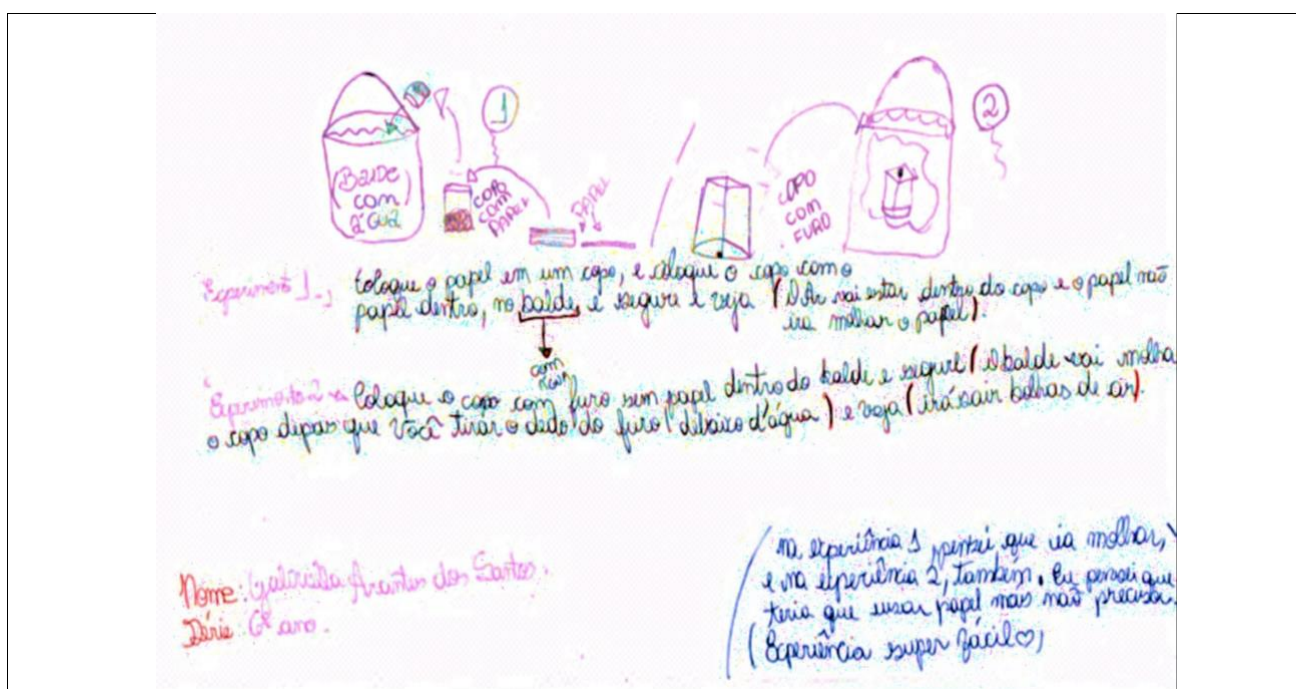 1
2
(BALDE
COM
ÁGUA
COPO
COM
PAPEL
PAPEL
COPO
COM
FURO
Experimento 1 → Coloque o papel em um copo, e coloque o copo com o
papel dentro, no balde e segure e veja (O Ar vai estar dentro do copo e o papel não
ira molhar o papel).
com
Experimento 2 → Coloque o copo com furo sem papel dentro do balde e segure (o balde vai molha
o copo depois que Você tirar o dedo do furo (debaixo d'água) e veja (irá sair bolhas de ar).
Nome: Gabriella Arantes dos Santos.
Série: 6º ano.
na experiência 1 pensei que ia molhar,
e na experiência 2, também. Eu pensei que
teria que usar papel mais não precisa.
(Experiência super fácil♡)